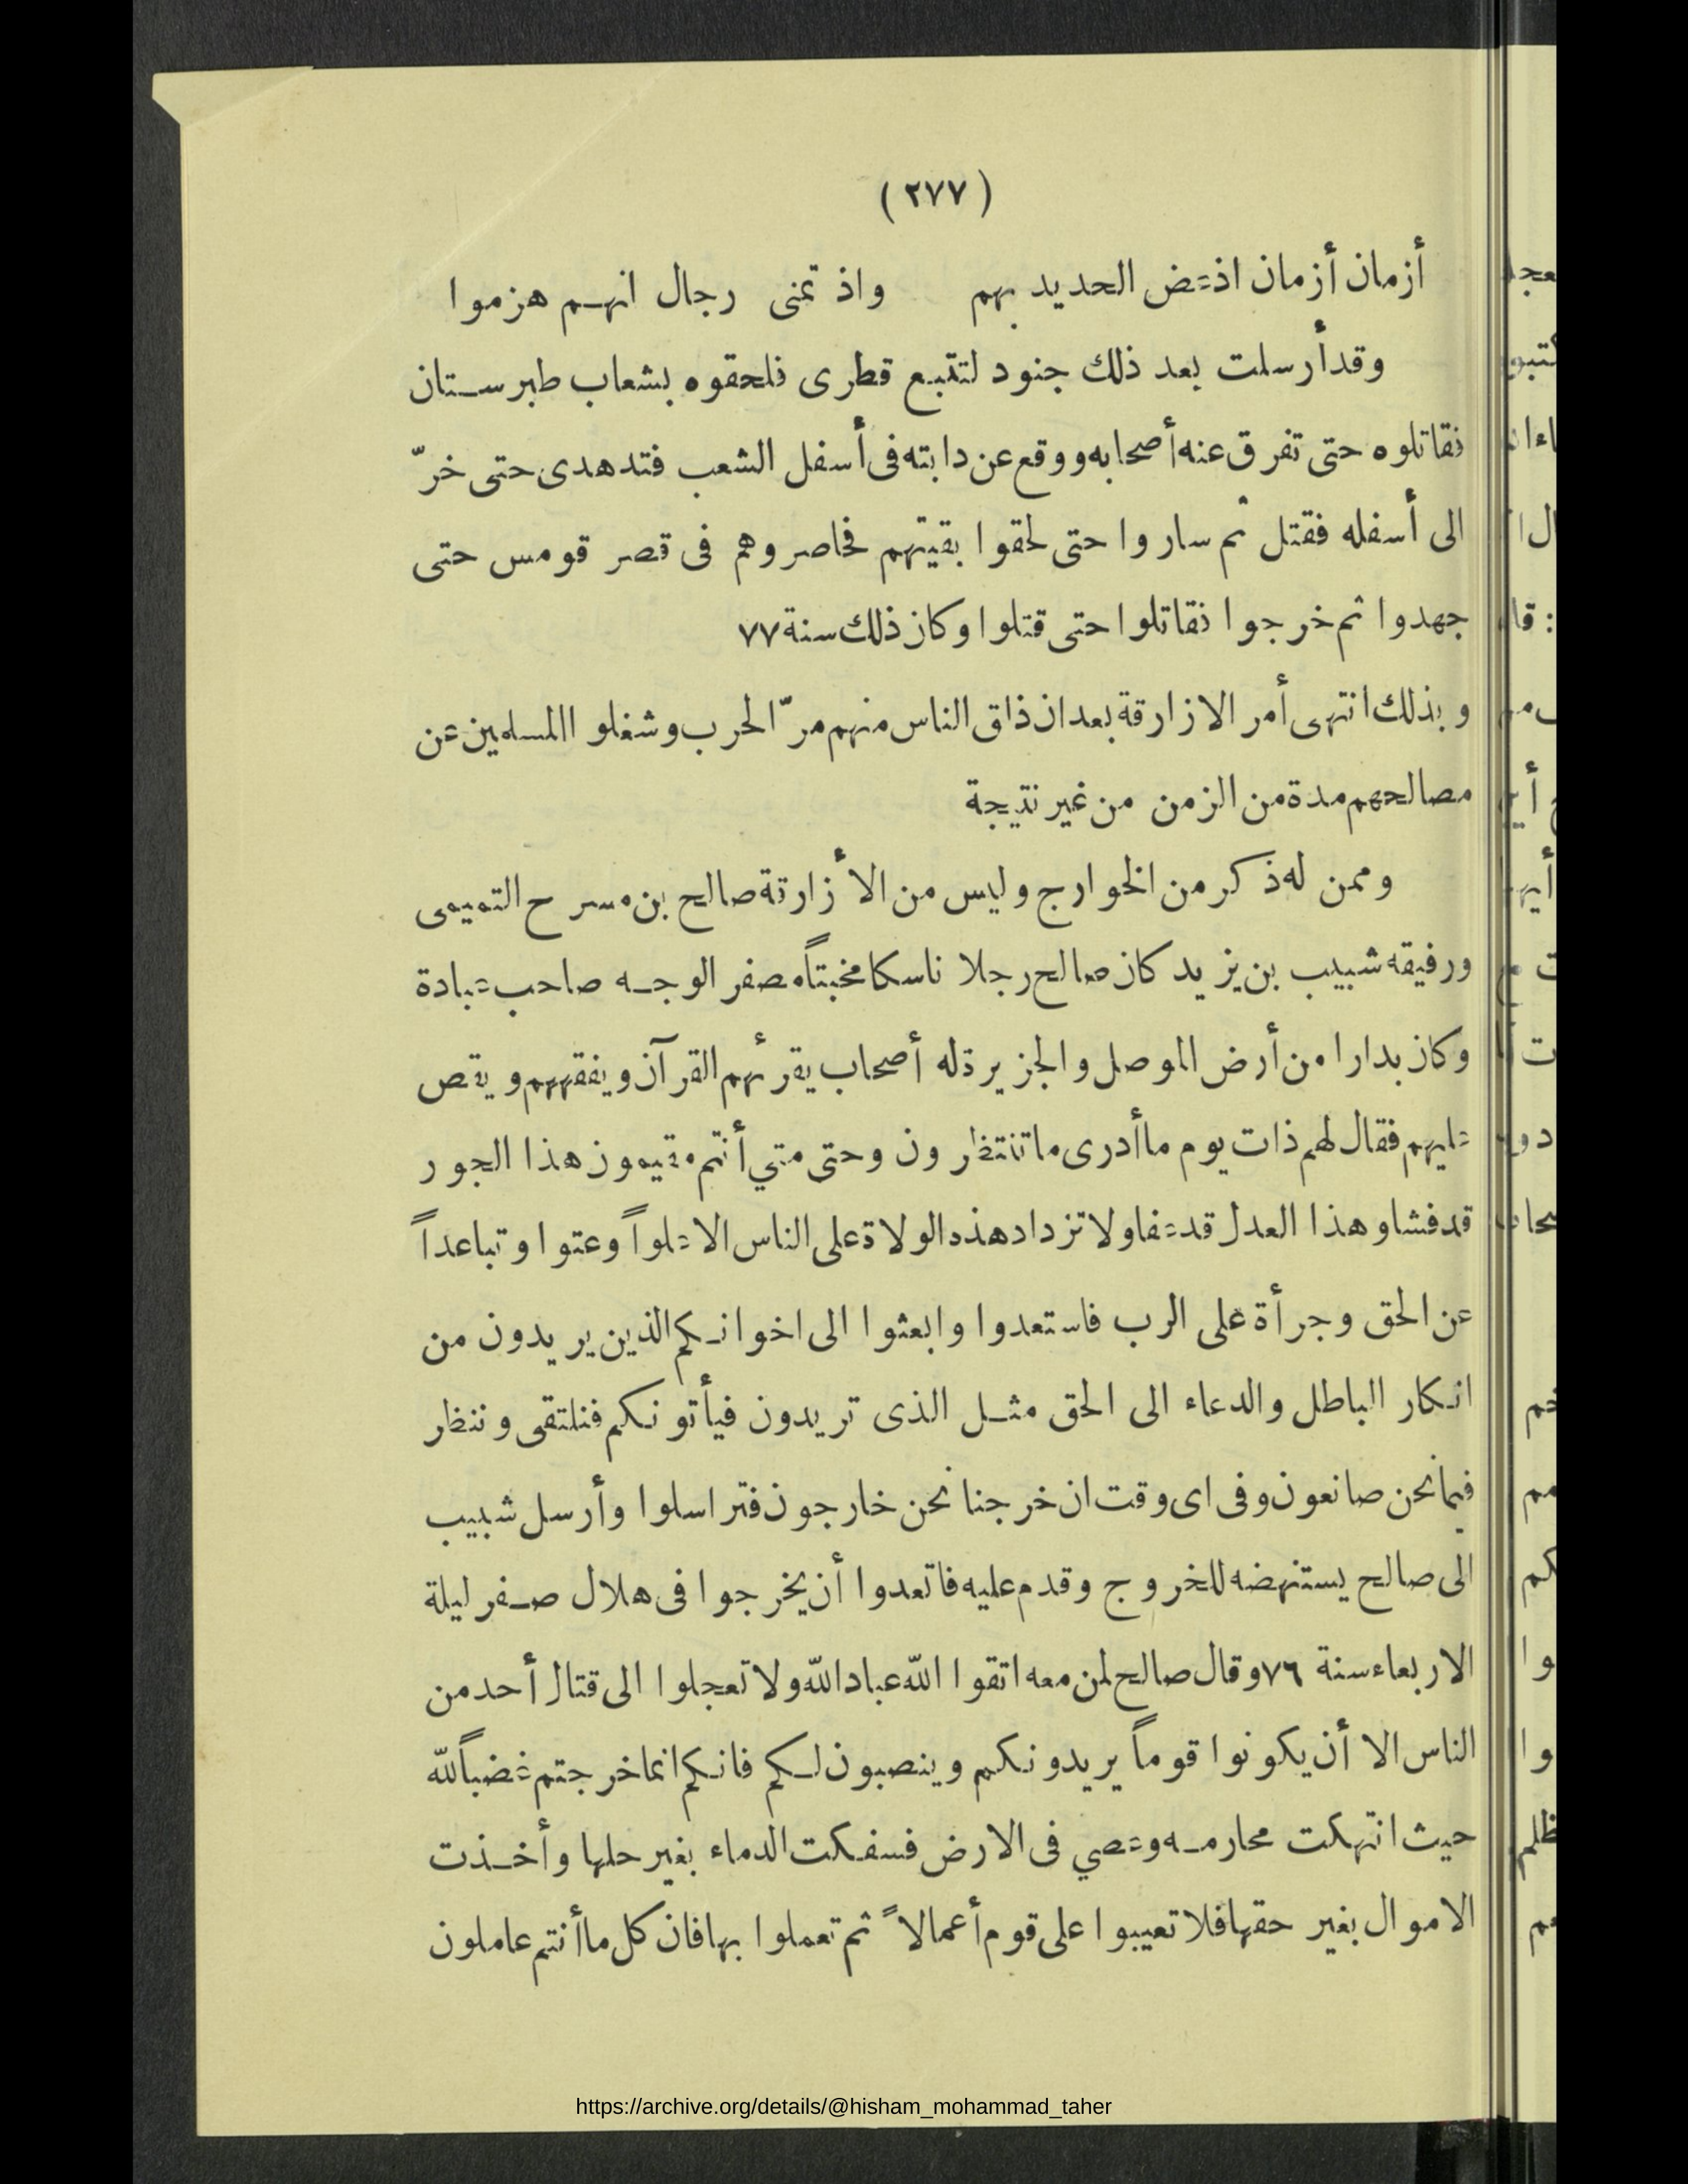 (٢٧٧)
أزمان أزمان اذ عض الحديد بهم واذ تمنى رجال انهم هزموا
وقد أرسلت بعد ذلك جنود لتتبع قطرى فلحقوه بشعاب طبرستان
فقاتلوه حتى تفرق عنه أصحابه ووقع عن دابته فى أسفل الشعب فتدهدى حتى خرّ
الى أسفله فقتل ثم ساروا حتى لحقوا بقيتهم فحاصروهم فى قصر قومس حتى
جهدوا ثم خرجوا فقاتلوا حتى قتلوا وكان ذلك سنة ٧٧
وبذلك انتهى أمر الازارقة بعد ان ذاق الناس منهم مرّ الحرب وشغلوا المسلمين عن
مصالحهم مدة من الزمن من غير نتيجة
وممن له ذكر من الخوارج وليس من الأزارقة صالح بن مسرح التميمى
ورفيقه شبيب بن يزيد كان صالح رجلا ناسكا مخبتاً مصفر الوجه صاحب عبادة
وكان بدارا من أرض الموصل والجزيرة له أصحاب يقرئهم القرآن ويفقههم ويقص
عليهم فقال لهم ذات يوم ما أدرى ما تنتظرون وحتى متي أنتم مقيمون هذا الجور
قد فشا وهذا العدل قد عفا ولا تزداد هذه الولاة على الناس الا علواً وعتوا وتباعداً
عن الحق وجرأة على الرب فاستعدوا وابعثوا الى اخوانكم الذين يريدون من
انكار الباطل والدعاء الى الحق مثل الذى تريدون فيأتونكم فنلتقى وننظر
فيما نحن صانعون وفى اى وقت ان خرجنا نحن خارجون فتراسلوا وأرسل شبيب
الى صالح يستنهضه للخروج وقدم عليه فاتعدوا أن يخرجوا فى هلال صفر ليلة
الاربعاء سنة ٧٦ وقال صالح لمن معه اتقوا الله عباد الله ولا تعجلوا الى قتال أحد من
الناس الا أن يكونوا قوماً يريدونكم وينصبون لكم فانكم انما خرجتم غضباً لله
حيث انتهكت محارمه وعصي فى الارض فسفكت الدماء بغير حلها وأخذت
الاموال بغير حقها فلا تعيبوا على قوم أعمالاً ثم تعملوا بها فان كل ما أنتم عاملون
https://archive.org/details/@hisham_mohammad_taher